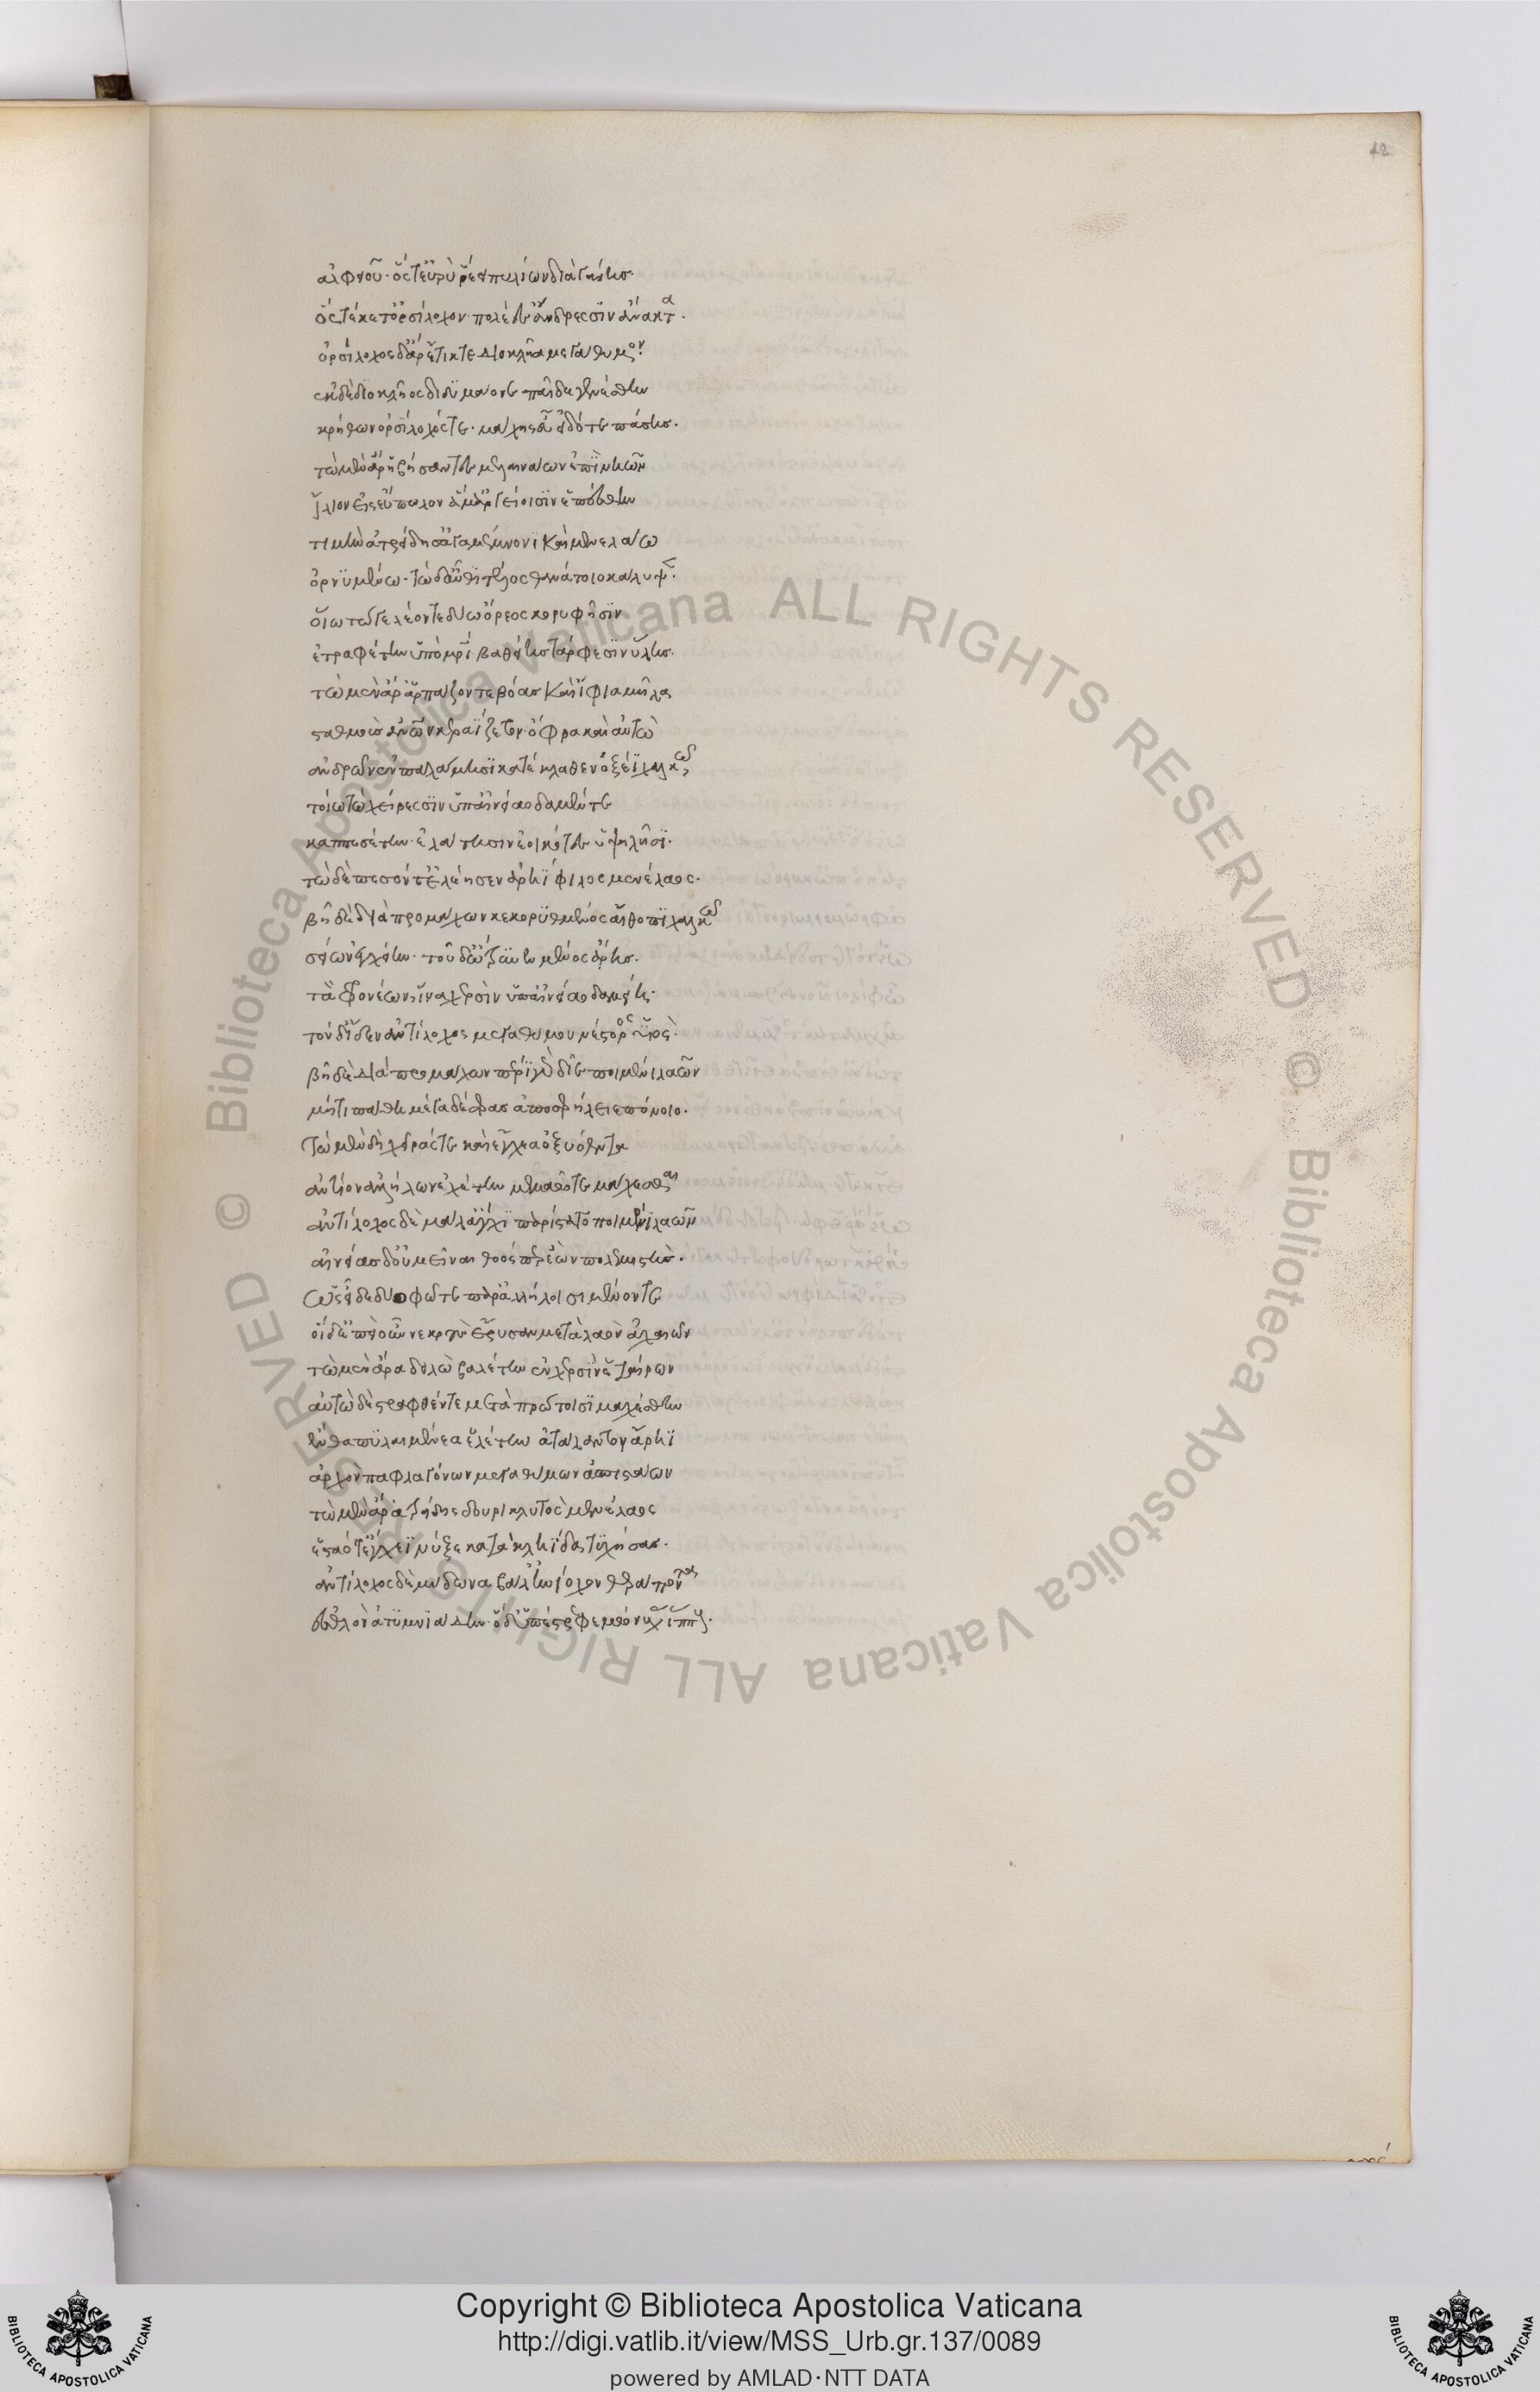 42
ἀλφειοῦ· ὅς τ' εὐρὺ ῥέει πυλίων διὰ γαίης.
ὅς τέκετ' ὀρσίλοχον πολέεσσ' ἄνδρεσσιν ἄνακτα.
ὀρσίλοχος δ' ἄρ' ἔτικτε διοκλῆα μεγάθυμον.
ἐκ δὲ διοκλῆος διδυμάονε παῖδε γενέσθην
κρήθων ὀρσίλοχός τε· μάχης εὖ εἰδότε πάσης.
τὼ μὲν ἄρ' ἡβήσαντε μελαινάων ἐπὶ νηῶν
ἴλιον εἰς εὔπωλον ἅμ' ἀργείοισιν ἑπέσθην
τιμὴν ἀτρείδης ἀγαμέμνονι καὶ μενελάω
ὀρνυμένω· τὼ δ' αὖθι τέλος θανάτοιο κάλυψεν.
οἵω τώ γε λέοντε δύω ὄρεος κορυφῆσιν
ἐτραφέτην ὑπὸ μητρὶ βαθείης τάρφεσιν ὕλης.
τὼ μὲν ἄρ' ἁρπάζοντε βόας καὶ ἴφια μῆλα
σταθμοὺς ἀνθρώπων κεραΐζετον· ὄφρα καὶ αὐτὼ
ἀνδρῶν ἐν παλάμησι κατέκταθεν ὀξέϊ χαλκῶ
τοίω τὼ χείρεσσιν ὑπ' αἰνείαο δαμέντε
καππεσέτην· ἐλάτησιν ἐοικότες ὑψηλῆσι.
τὼ δὲ πεσόντ' ἐλέησεν ἀρηΐφιλος μενέλαος.
βῆ δὲ διὰ προμάχων κεκορυθμένος αἴθοπι χαλκῶ
σείων ἐγχείην· τοῦ δ' ὤτρυνεν μένος ἄρης.
τὰ φρονέων ἵνα χερσὶν ὑπ' αἰνείαο δαμείη.
τὸν δ' ἴδεν ἀντίλοχος μεγαθύμου νέστορος υἱός.
βῆ δὲ διὰ προμάχων περὶ γὰρ δίε ποιμένι λαῶν
μήτι πάθη μέγα δέ σφας ἀποσφήλειε πόνοιο.
τὼ μὲν δὴ χεῖράς τε καὶ ἔγχεα ὀξυόεντα
ἀντίον ἀλλήλων ἐχέτην μεμαῶτε μάχεσθαι
ἀντίλοχος δὲ μάλ' ἄγχι παρίστατο ποιμένι λαῶν
αἰνείας δ' οὐ μεῖναι θοός περ ἐὼν πολεμιστής.
ὡς εἶδε δύο φῶτε παρ' ἀλλήλοισι μένοντε
οἱ δ' ἐπεὶ οὖν νεκροὺς ἔρυσαν μετὰ λαὸν ἀχαιῶν
τὼ μὲν ἄρα δειλὼ βαλέτην ἐν χερσὶν ἑταίρων
αὐτὼ δὲ στρεφθέντε μετὰ πρώτοισι μαχέσθην
ἔνθα πυλαιμένεα ἑλέτην ἀτάλαντον ἄρηϊ
ἀρχὸν παφλαγόνων μεγαθύμων ἀσπιστάων
τὸν μὲν ἄρ' ἀτρείδης δουρικλυτὸς μενέλαος
ἑσταότ' ἔγχεϊ νύξε κατὰ κληΐδα τυχήσας.
ἀντίλοχος δὲ μύδωνα βάλ' ἡνίοχον θεράποντα
ἐσθλὸν ἀτυμνιάδην· ὁ δ' ὑπέστρεφε μώνυχας ἵππους.
Copyright © Biblioteca Apostolica Vaticana
http://digi.vatlib.it/view/MSS_Urb.gr.137/0089
powered by AMLAD·NTT DATA